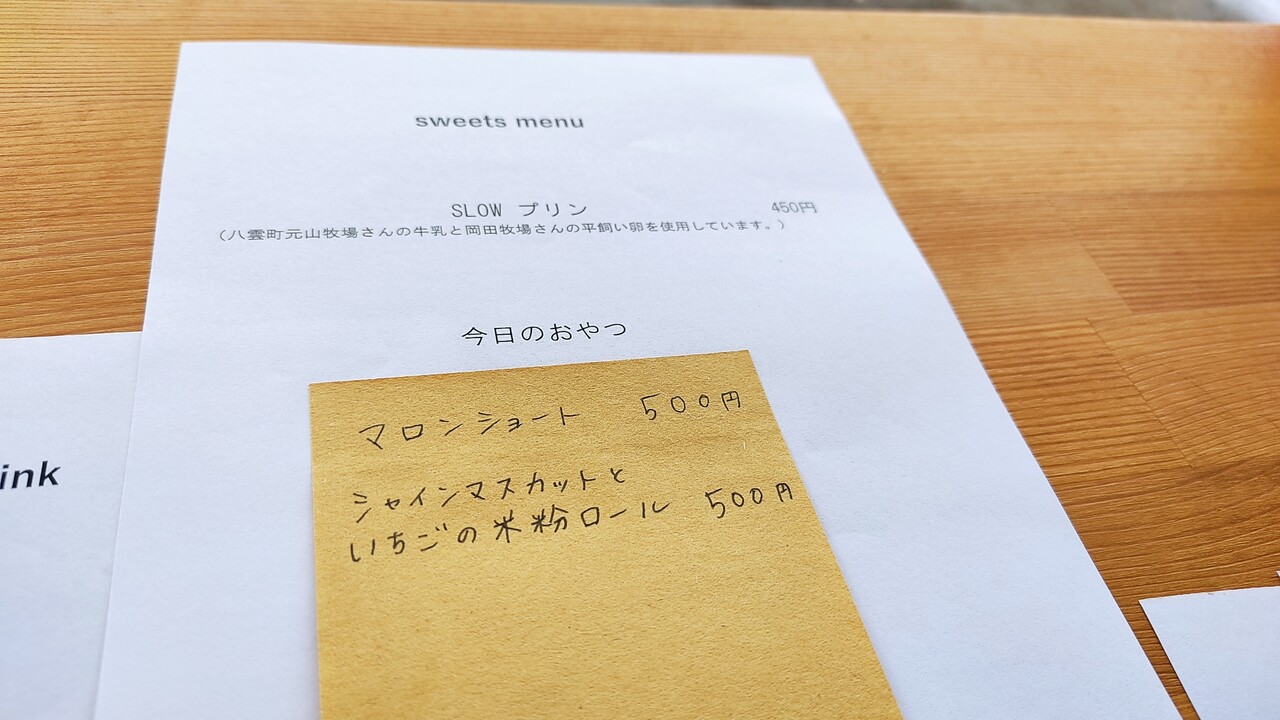 sweets menu
SLOW プリン 450円
（八雲町元山牧場さんの牛乳と岡田牧場さんの平飼い卵を使用しています。）
今日のおやつ
マロンショート 500円
シャインマスカットと
いちごの米粉ロール 500円
ink